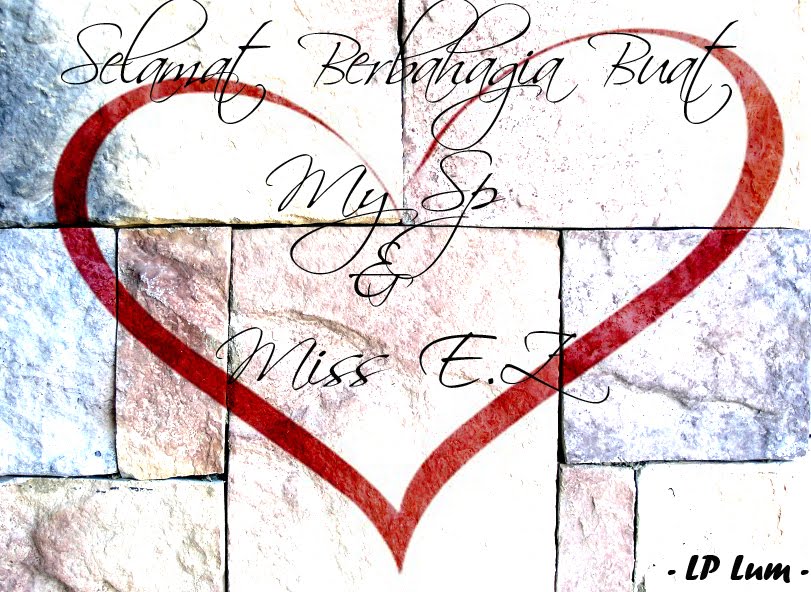 Selamat Berbahagia Buat
My Sp
&
Miss E.Z
- LP Lum -